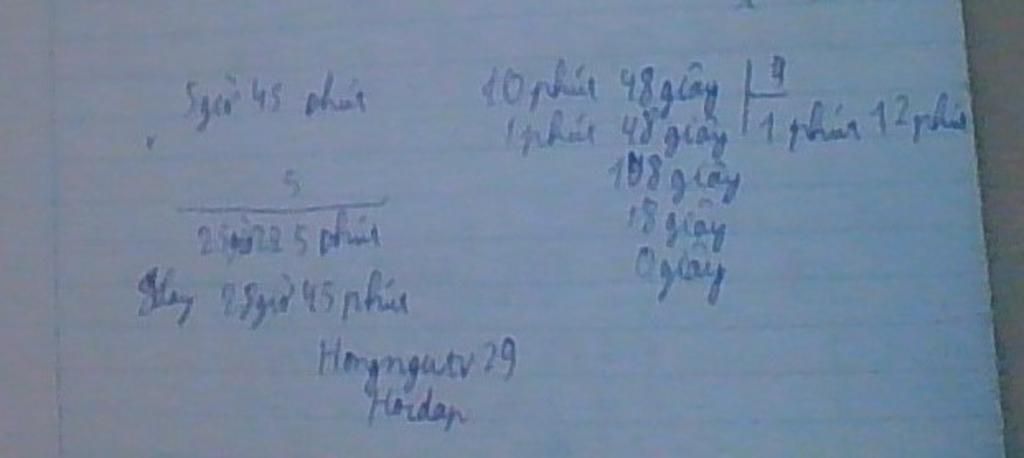 5giờ 45 phút
5
25giờ 225 phút
Hay 28giờ 45 phút
10 phút 48 giây 9
1 phút 48 giây 1 phút 12 phút
108 giây
18 giây
0 giây
Hongngutv 29
Hoidap